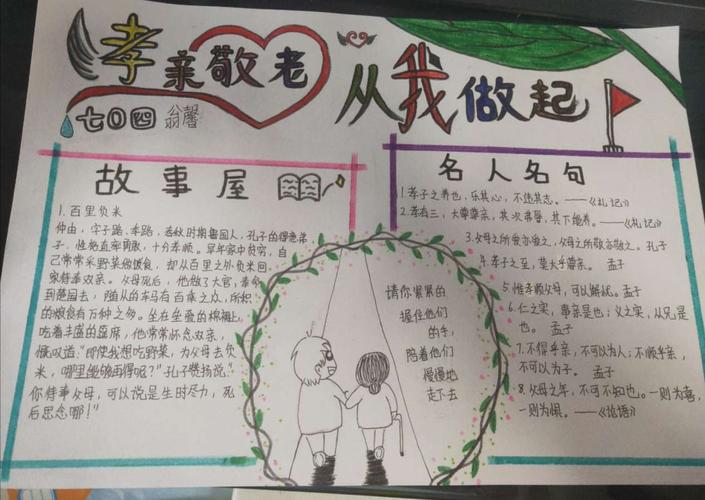 孝亲敬老
从我做起
七〇四 翁馨
故事屋
1.百里负米
仲由，字子路、季路，春秋时期鲁国人，孔子的得意弟
子，性格直率勇敢，十分孝顺。早年家中贫穷，自
己常常采野菜做饭食，却从百里之外负米回
家侍奉双亲。父母死后，他做了大官，奉命
到楚国去，随从的车马有百乘之众，所积
的粮食有万钟之多。坐在垒叠的棉褥上，
吃着丰盛的筵席，他常常怀念双亲，
慨叹道："即使我想吃野菜，为父母去负
米，哪里能够再得呢？"孔子赞扬说："
你侍事父母，可以说是生时尽力，死
后思念哪！"
请你紧紧的
握住他们
的手，
陪着他们
慢慢地
走下去
名人名句
1.孝子之养也，乐其心，不违其志。——《礼记》
2.孝有三，大尊尊亲，其次弗辱，其下能养。——《礼记》
3.父母之所爱亦爱之，父母之所敬亦敬之。孔子
4.孝子之至，莫大乎尊亲。 孟子
5.惟孝顺父母，可以解忧。孟子
6.仁之实，事亲是也；义之实，从兄是
也。 孟子
7.不得乎亲，不可以为人；不顺乎亲，
不可以为子。 孟子
8.父母之年，不可不知也。一则为喜，
一则为惧。——《论语》